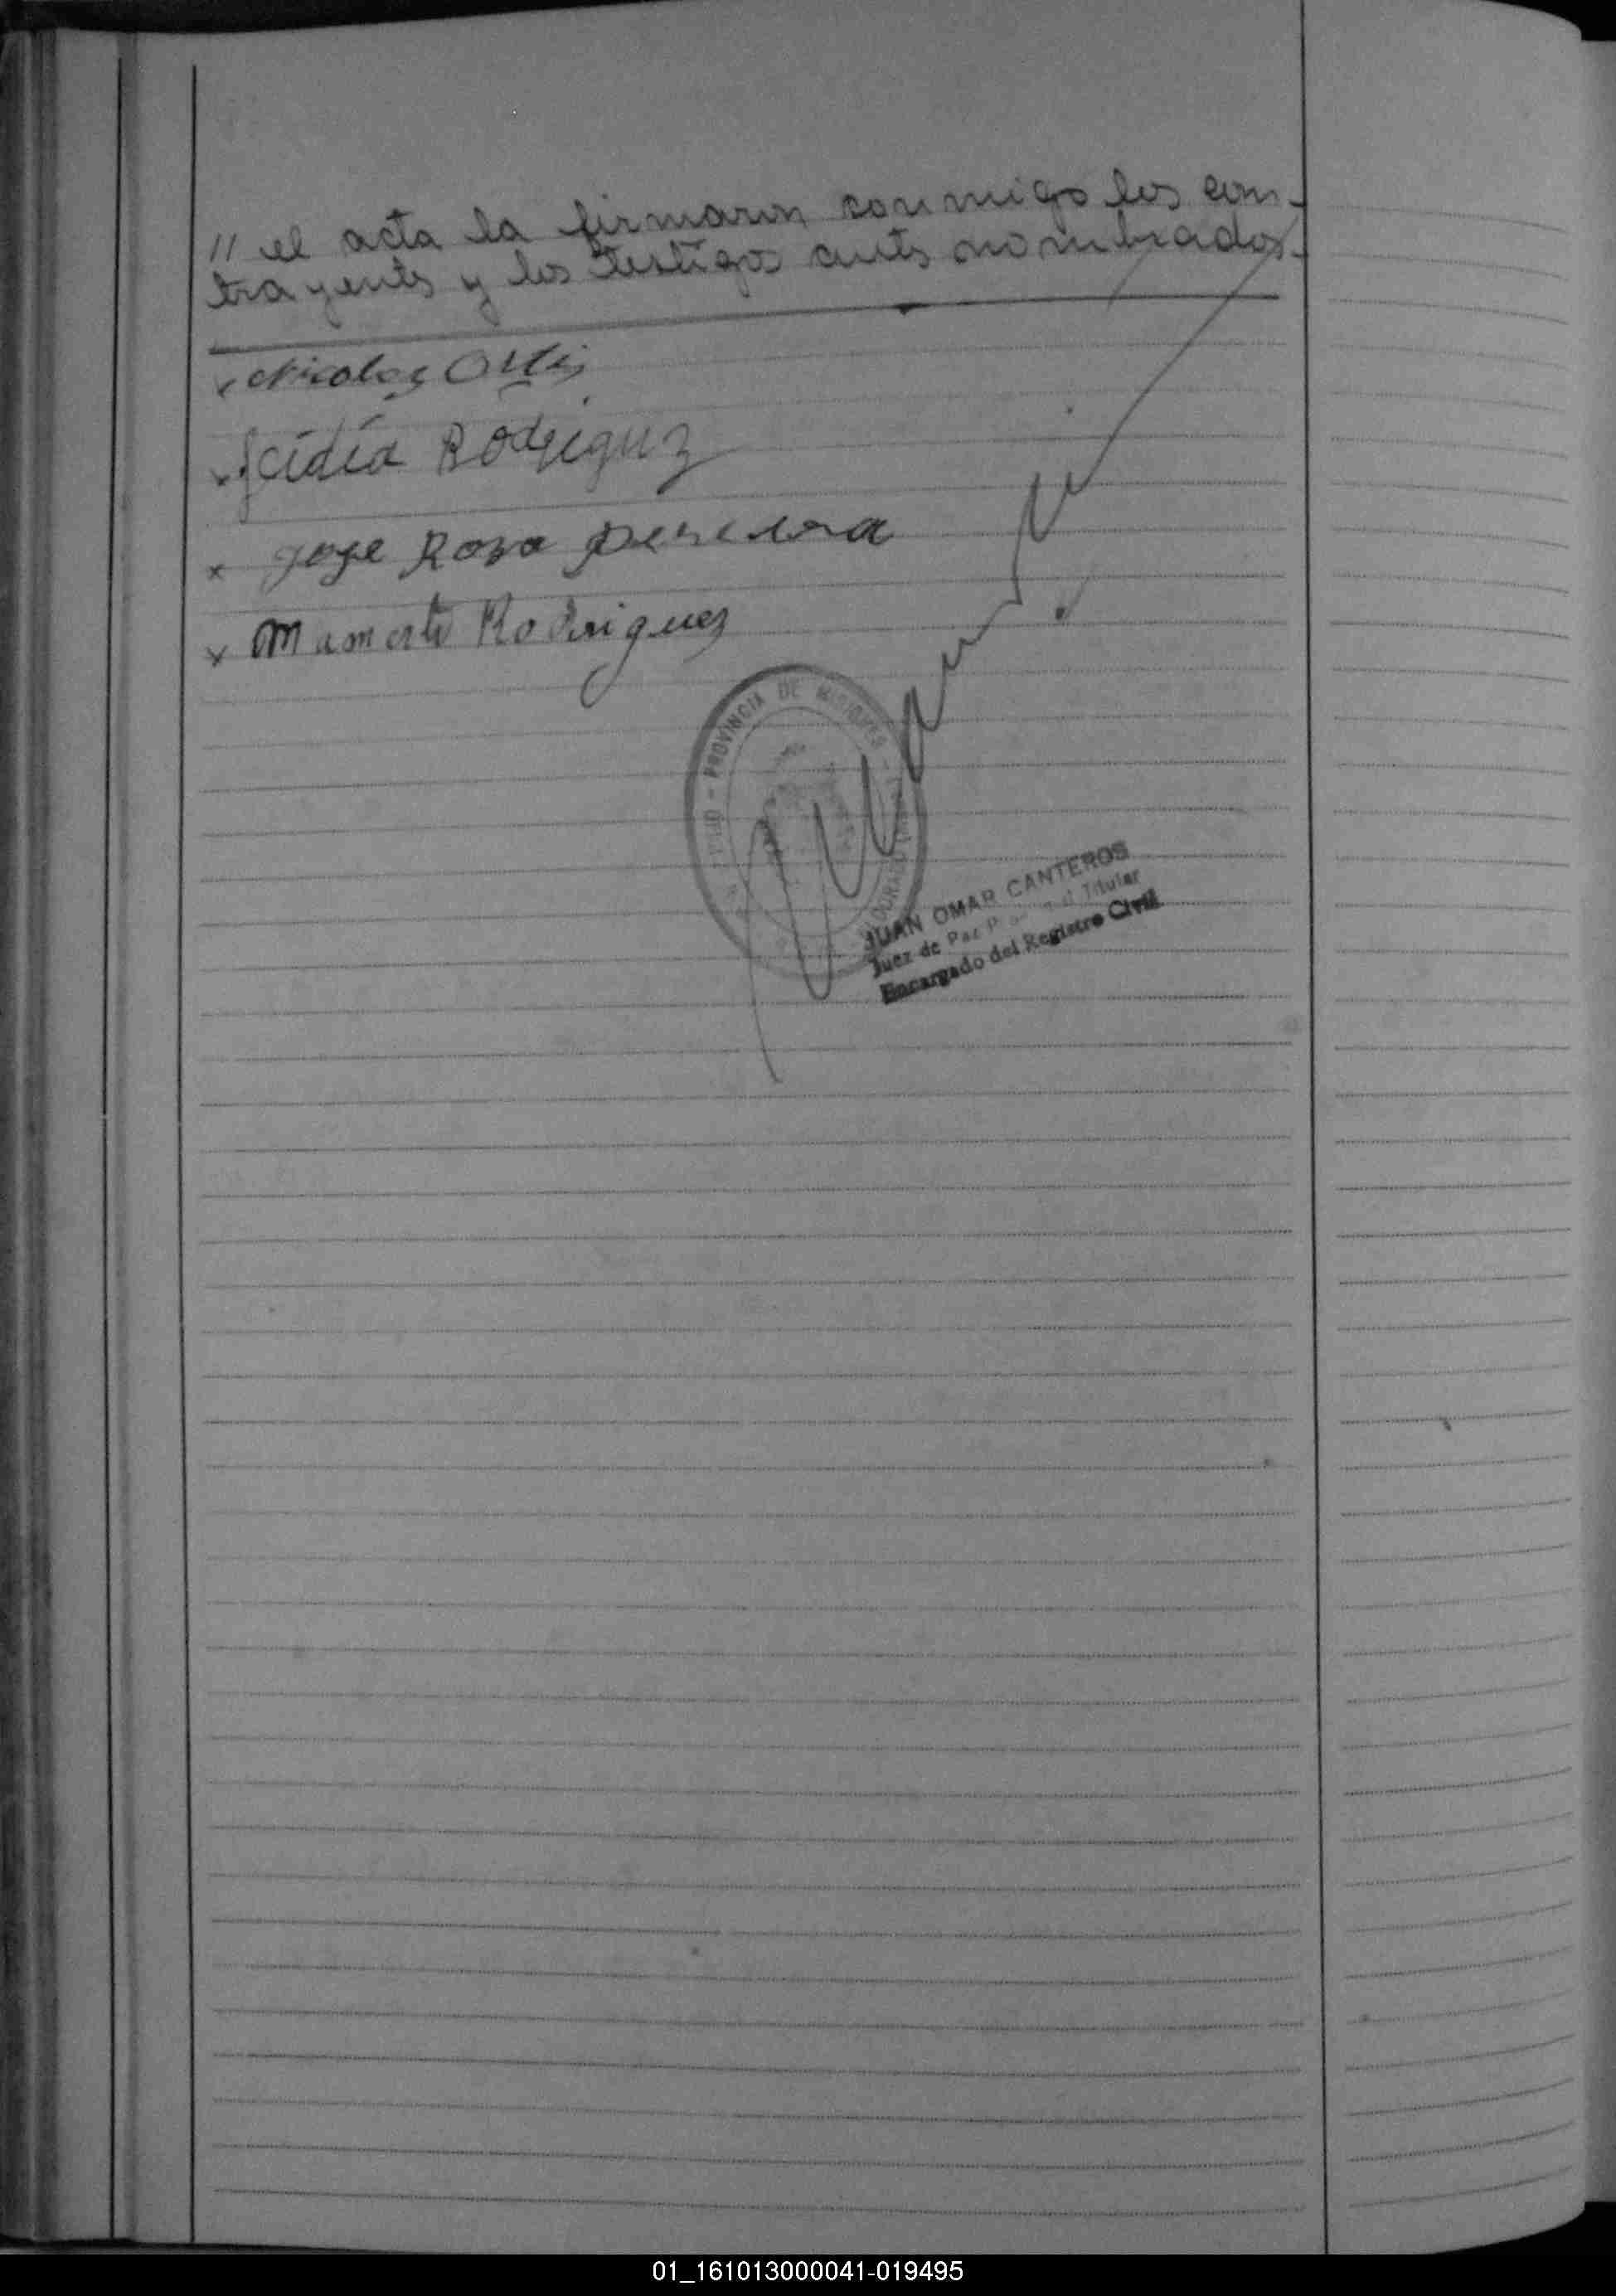 // el acta la firmaron conmigo los con-
trayentes y los testigos antes nombrados.-
x Nicolas Ortis
x Rodriguz
x Jose Roso pereira
x Mamerto Rodriguez
PROVINCIA DE MISIONES
JUAN OMAR CANTEROS
Juez de Paz Titular
Encargado del Registro Civil
01_161013000041-019495